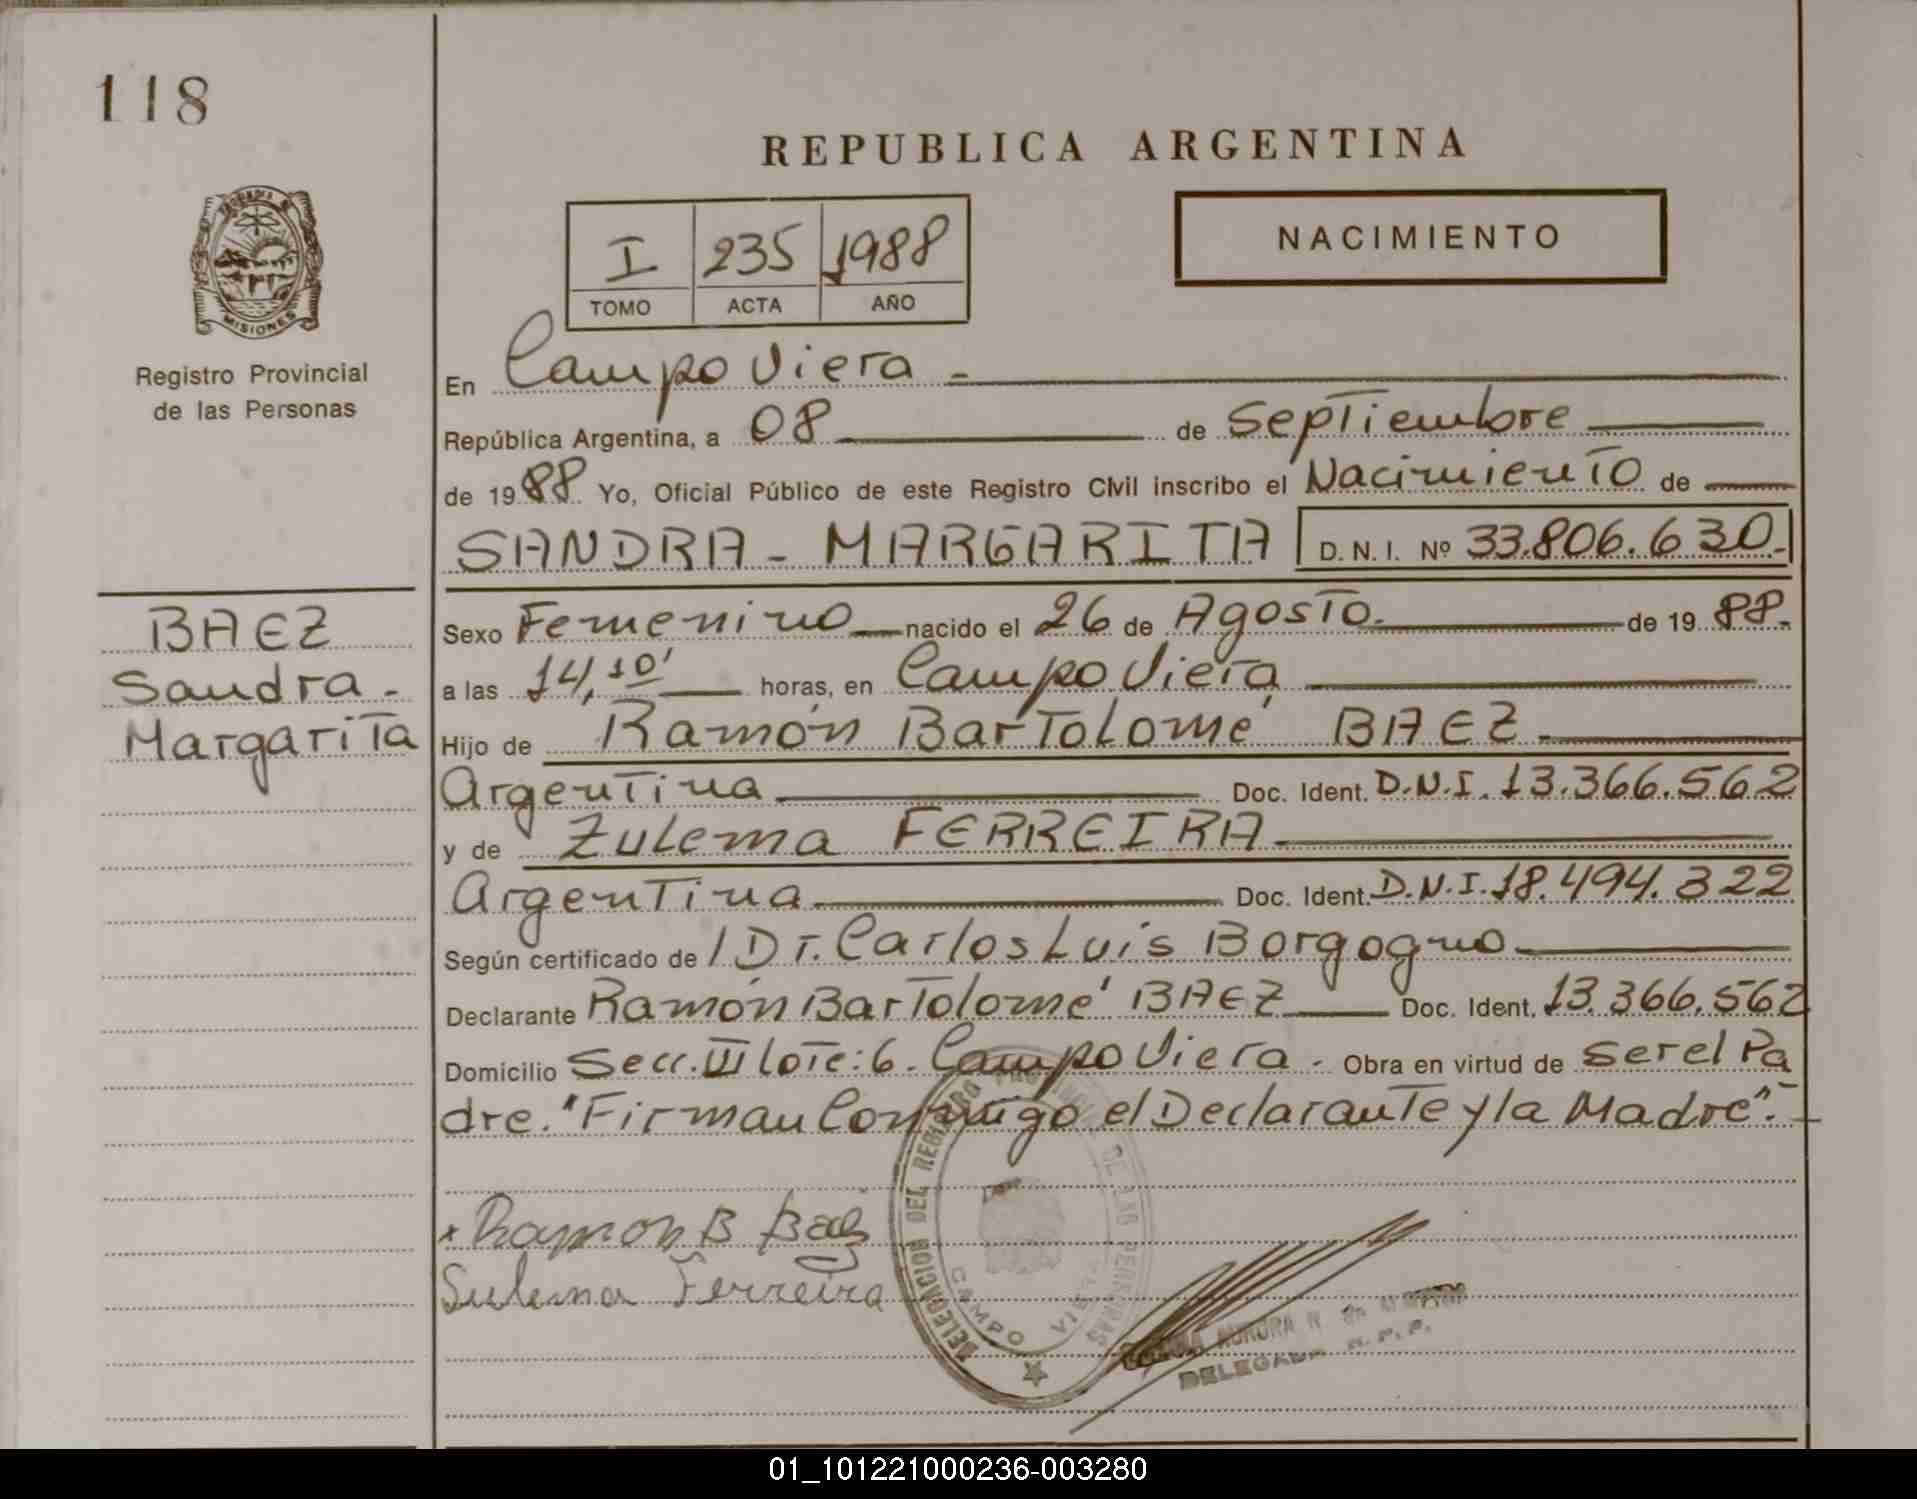 118
REPUBLICA ARGENTINA
I 235 1988
TOMO ACTA AÑO
NACIMIENTO
MISIONES
Registro Provincial
de las Personas
En Campo Viera -
República Argentina, a 08 de Septiembre
de 1988 Yo, Oficial Público de este Registro Civil inscribo el Nacimiento de
SANDRA - MARGARITA D.N.I. Nº 33.806.630.-
BAEZ
Sandra -
Margarita
Sexo Femenino nacido el 26 de Agosto. de 1988.
a las 14,10' horas, en Campo Viera
Hijo de Ramón Bartolomé BAEZ.
Argentina Doc. Ident. D.N.I. 13.366.562
y de Zulema FERREIRA
Argentina Doc. Ident. D.N.I. 18.494.322
Según certificado de / Dr. Carlos Luis Borgogno
Declarante Ramón Bartolomé BAEZ Doc. Ident. 13.366.562
Domicilio Secc. III Lote: 6. Campo Viera. Obra en virtud de ser el Pa
dre. "Firman Conmigo el Declarante y la Madre".-
Ramon B Baez
Sulema Ferreira
DELEGACION DEL REGISTRO PROVINCIAL DE LAS PERSONAS
CAMPO VIERA
AURORA N. de
DELEGADA R.P.P.
01_101221000236-003280